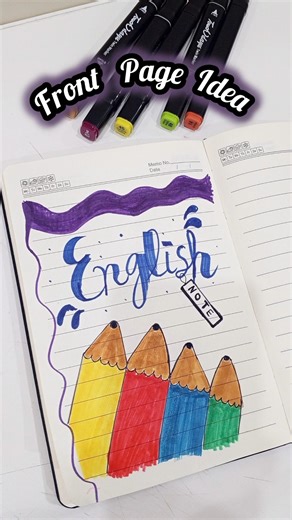 Front Page Idea
Memo No.
Date
English
NOTE